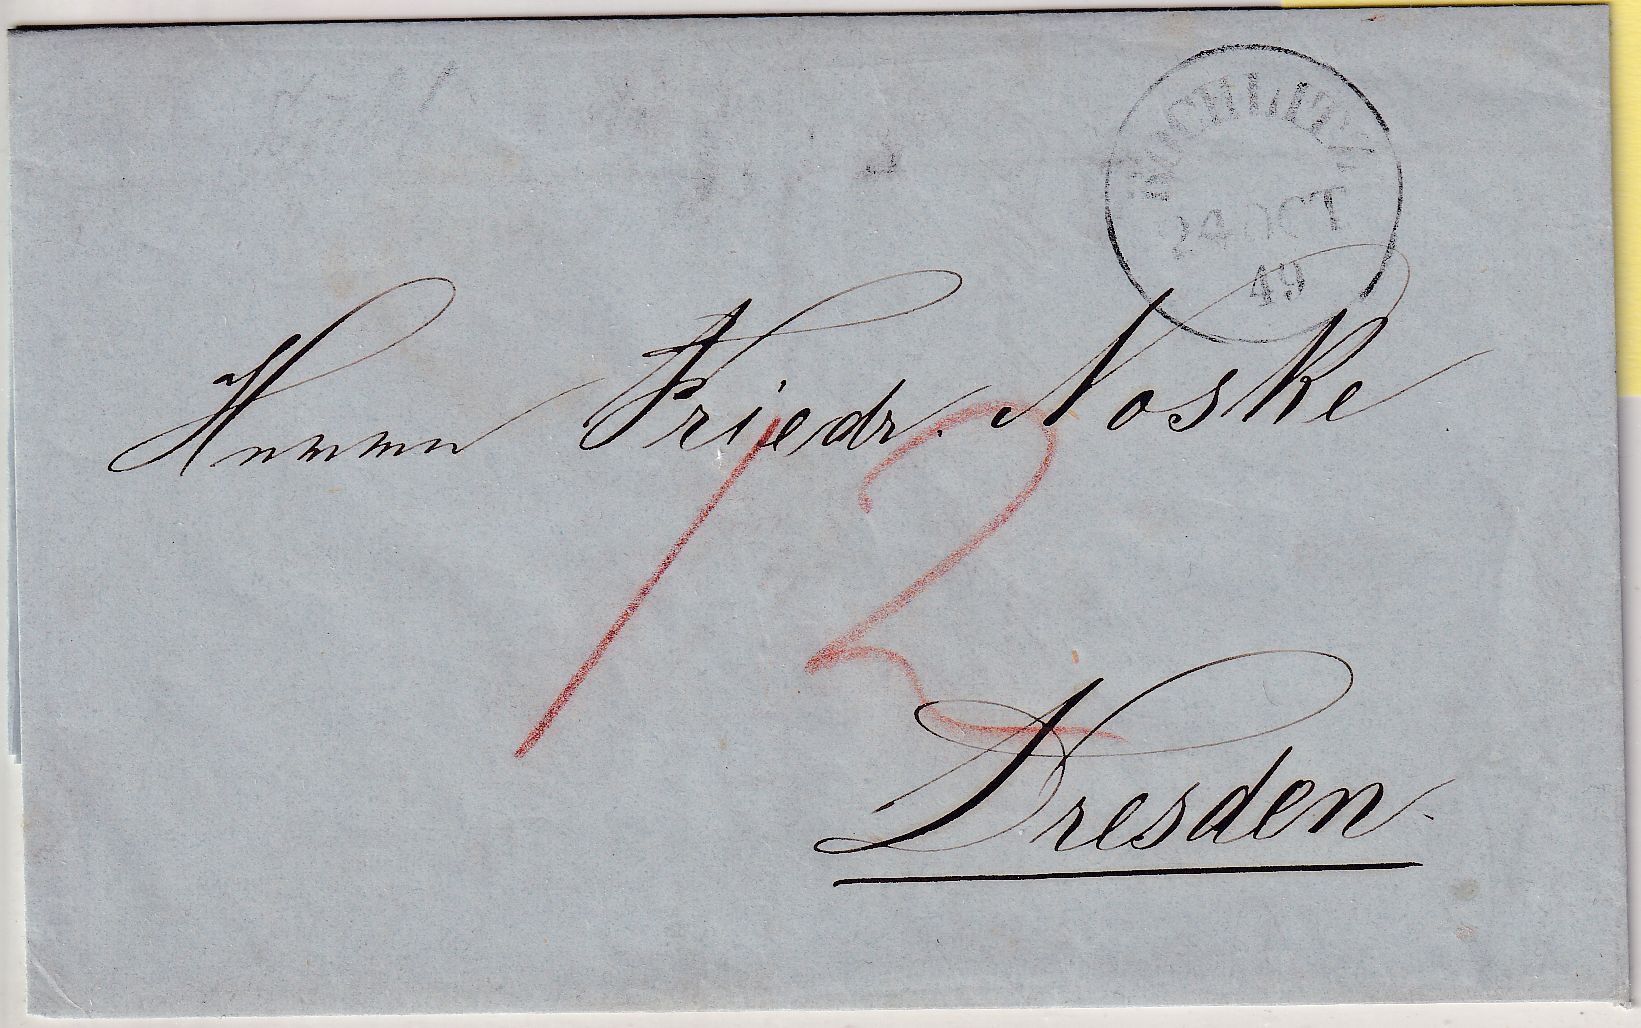 ROCHLITZ
24 OCT
49
Herrn Friedr. Noske
12
Dresden.